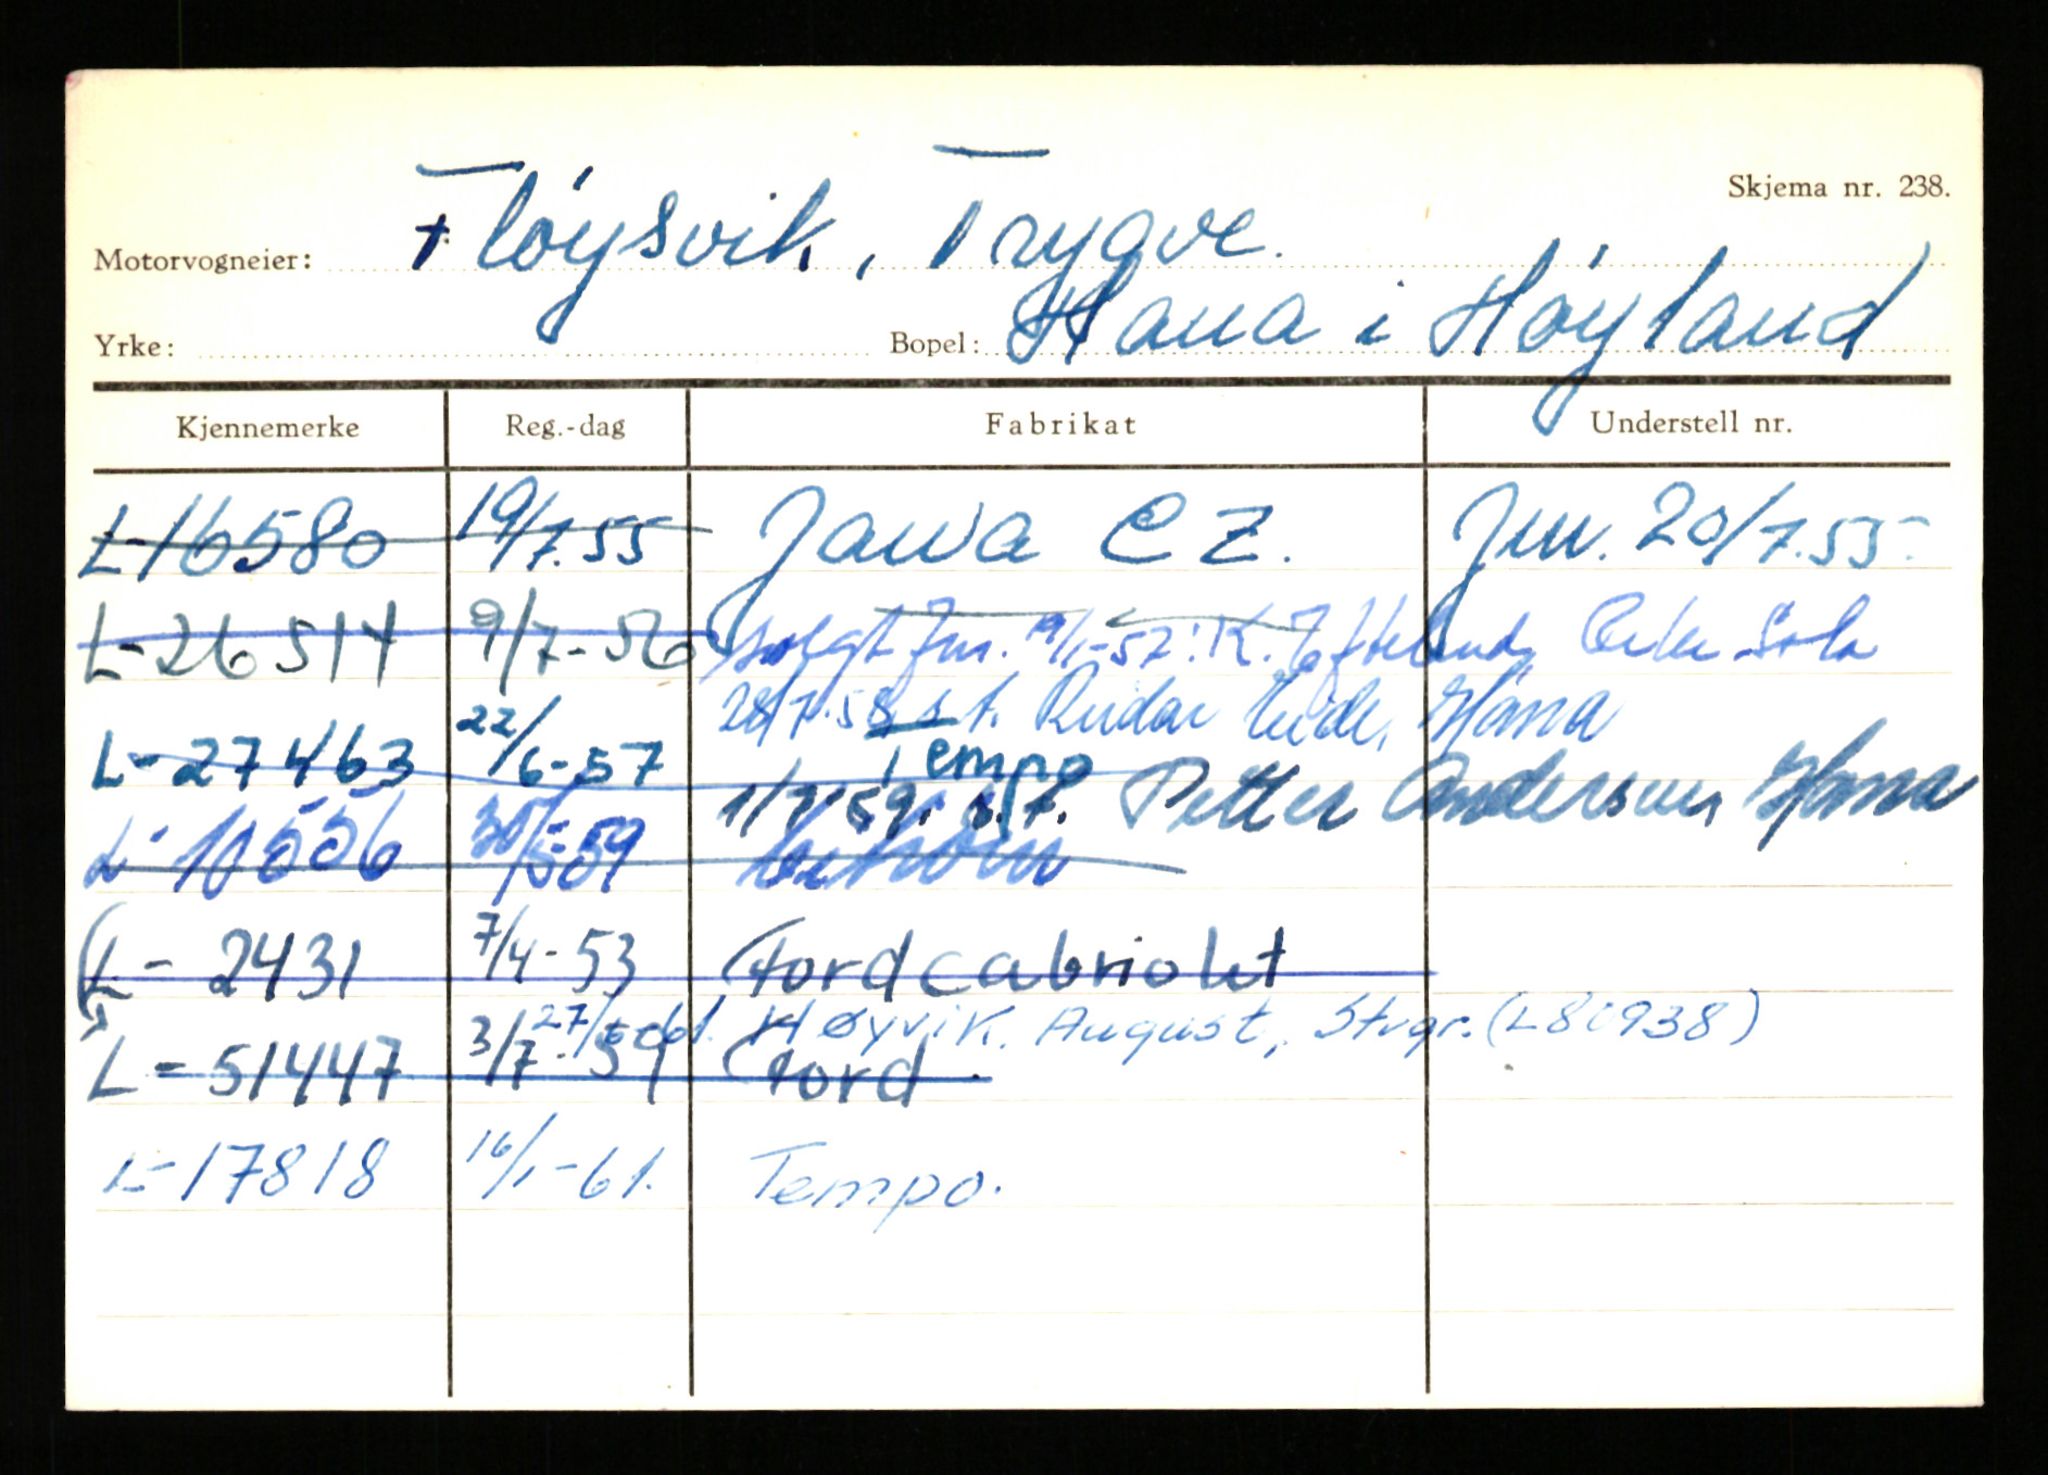 Skjema nr. 238.
Motorvogneier: Fløysvik, Trygve.
Yrke: Bopel: Hana i Høyland
Kjennemerke Reg.-dag Fabrikat Understell nr.
L-16580 19/7.55 Jawa CZ. Jnr. 20/7.55.
L-26514 9/7-56 solgt Jnr. 19/1-57: K. Sola
28/7.58 s.t. Reidar Eide, Hana
L-27463 22/6-57 Tempo
1/7.59. s.t. Petter Andersen, Hana
L-10556 30/5-59
(L-2431 7/4-53 Ford cabriolet
27/6-61. Høyvik. August, Stvgr. (L80938)
L-51447 3/7-59 Ford
L-17818 16/1-61. Tempo.